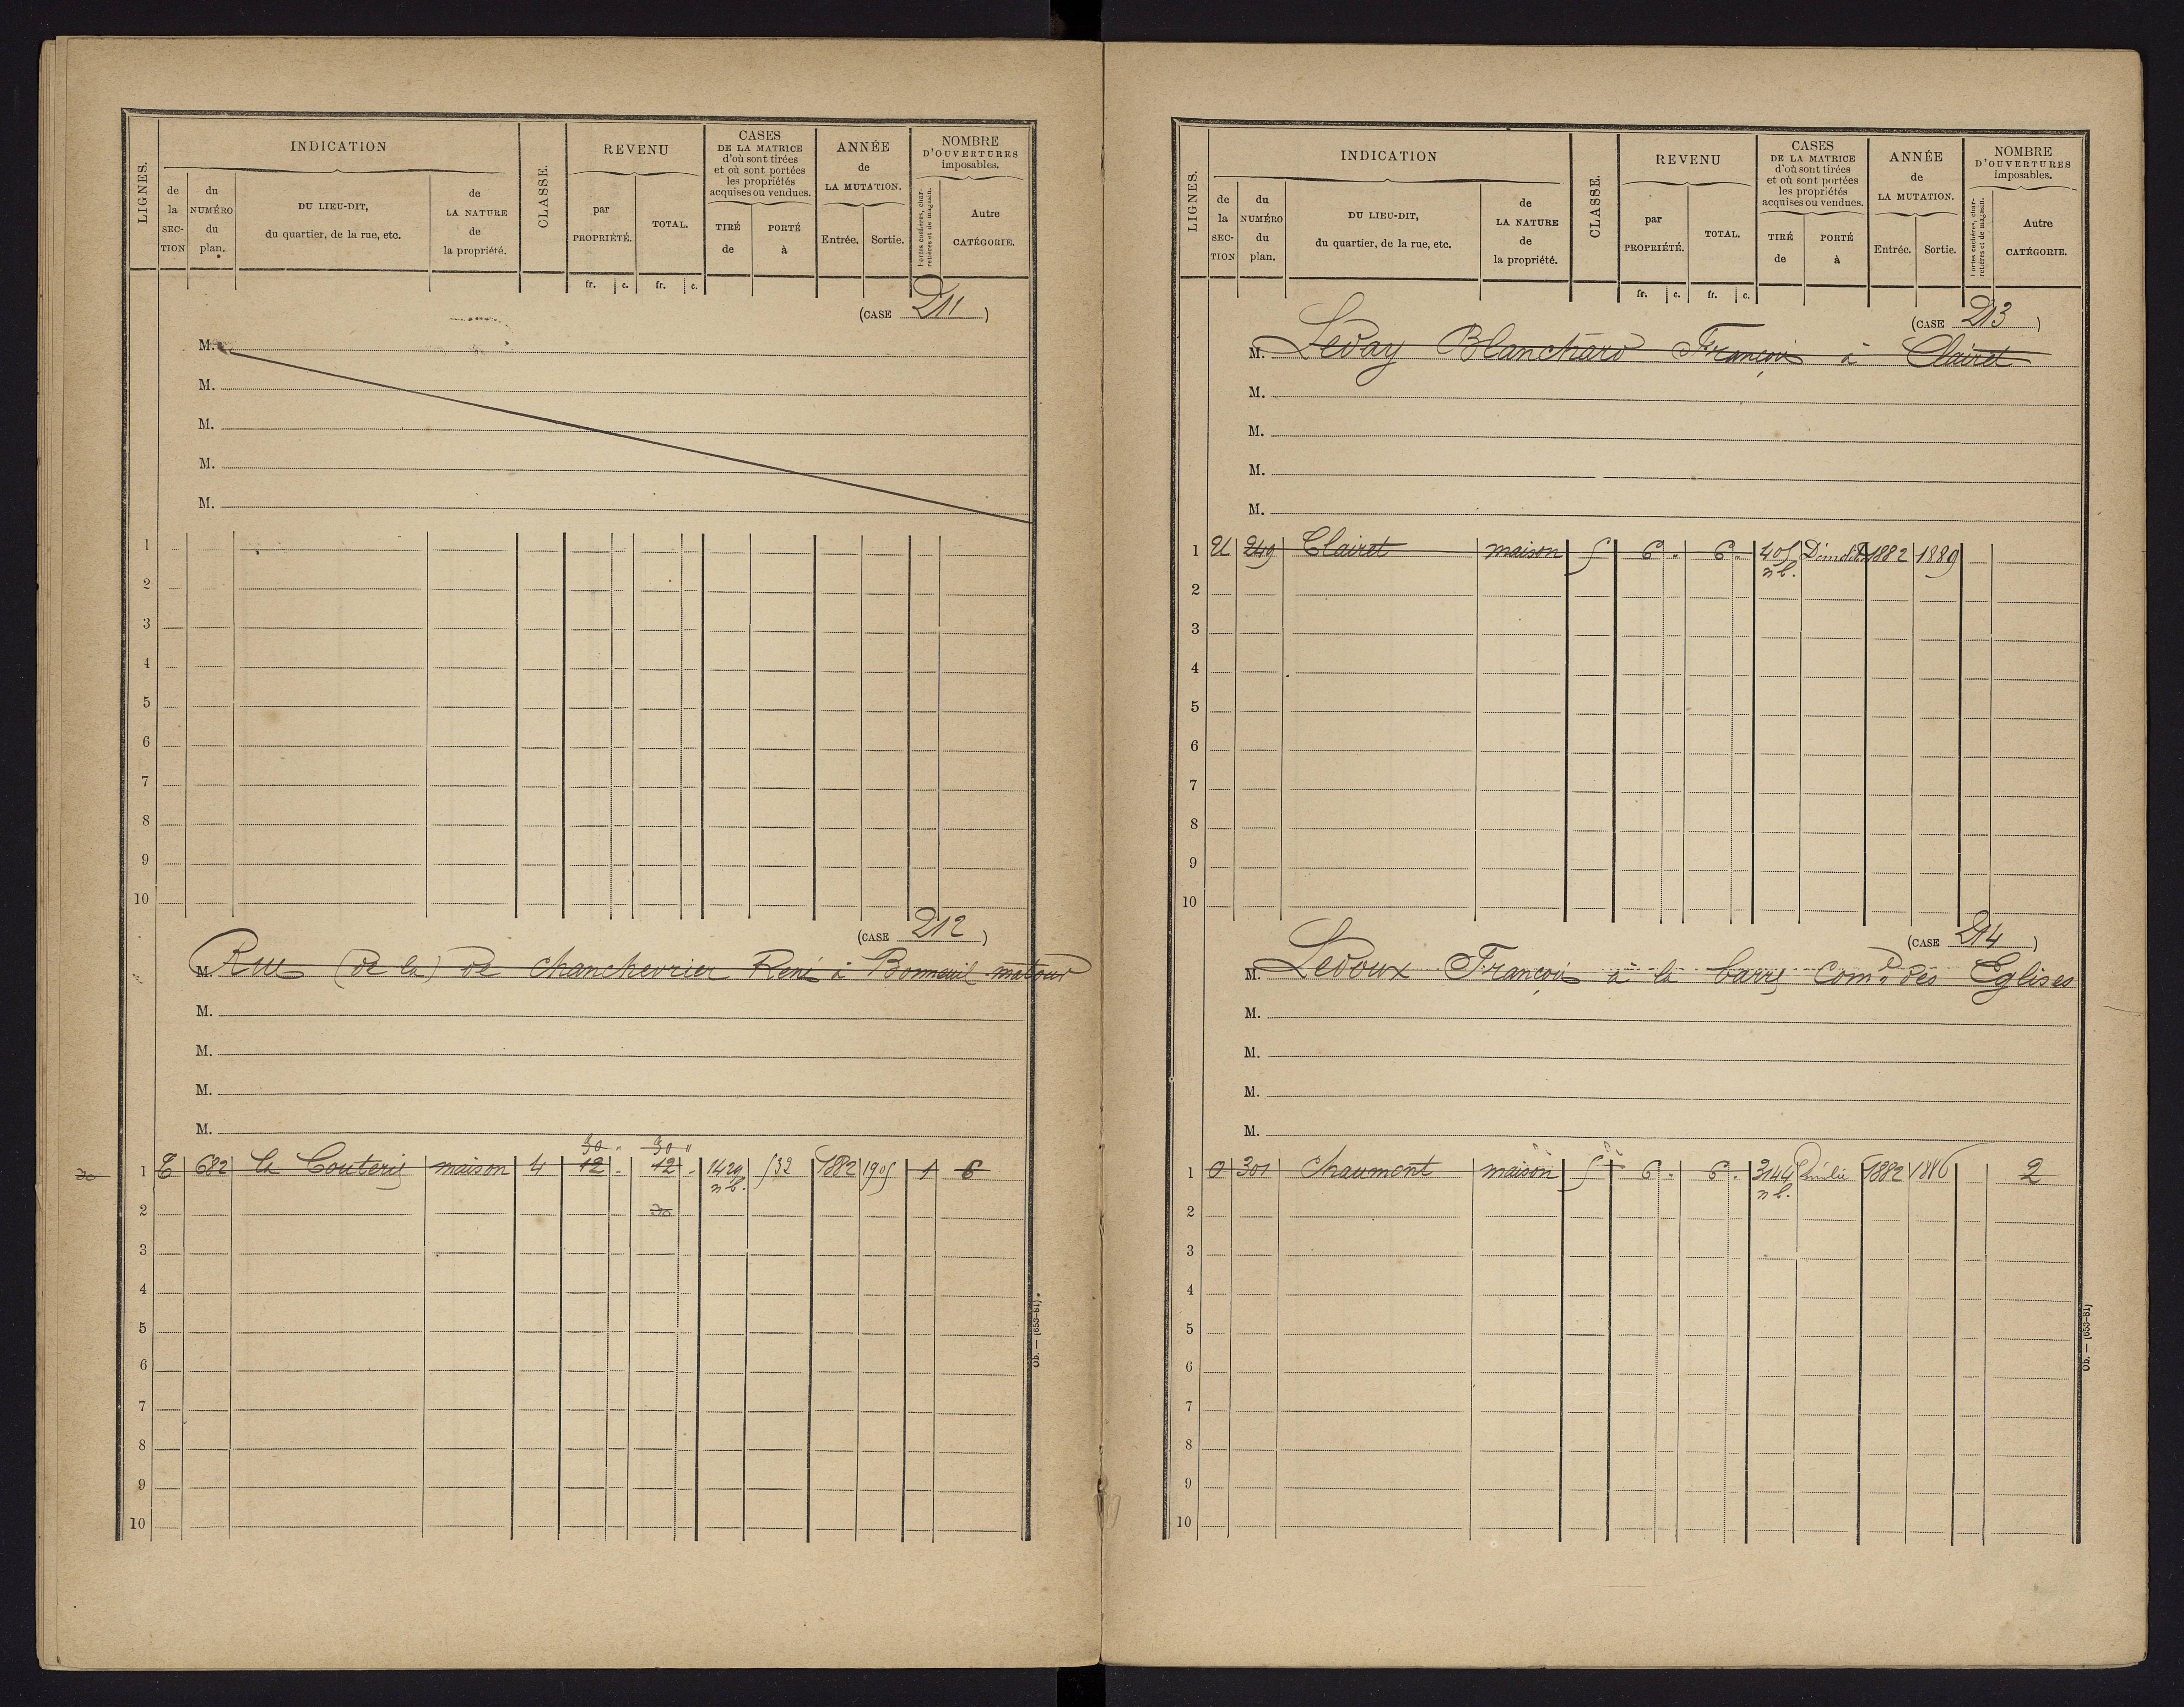 LIGNES.
INDICATION
de la SECTION
du NUMÉRO du plan.
DU LIEU-DIT,
du quartier, de la rue, etc.
de LA NATURE de la propriété.
CLASSE.
REVENU
par PROPRIÉTÉ.
TOTAL.
CASES
DE LA MATRICE
d'où sont tirées
et où sont portées
les propriétés
acquises ou vendues.
TIRÉ de
PORTÉ à
ANNÉE
de
LA MUTATION.
Entrée.
Sortie.
NOMBRE
D'OUVERTURES
imposables.
Portes cochères, charretières et de magasin.
Autre CATÉGORIE.
fr. c. fr. c.
(CASE 211)
M.
M.
M.
M.
M.
1
2
3
4
5
6
7
8
9
10
(CASE 212)
M. Rue (de la) de Chanchevrier René à Bonneuil matour
M.
M.
M.
M.
30 " 30 "
30 1 E 682 la Couterie maison 4 12 . 12 . 1429 532 1882 1905 1 6
n b.
2 30
3
4
5
6
7
8
9
10
Ob. — (653-81)
LIGNES.
INDICATION
de la SECTION
du NUMÉRO du plan.
DU LIEU-DIT,
du quartier, de la rue, etc.
de LA NATURE de la propriété.
CLASSE.
REVENU
par PROPRIÉTÉ.
TOTAL.
CASES
DE LA MATRICE
d'où sont tirées
et où sont portées
les propriétés
acquises ou vendues.
TIRÉ de
PORTÉ à
ANNÉE
de
LA MUTATION.
Entrée.
Sortie.
NOMBRE
D'OUVERTURES
imposables.
Portes cochères, charretières et de magasin.
Autre CATÉGORIE.
fr. c. fr. c.
(CASE 213)
M. Leday Blanchard François à Clairet
M.
M.
M.
M.
1 249 Clairet maison 5 6 . 6 . 405 1882 1889
n b.
2
3
4
5
6
7
8
9
10
(CASE 214)
M. Ledoux François à la barre Comne des Eglises
M.
M.
M.
M.
1 O 301 Chaumont maison 5 6 . 6 . 3144 1882 1886 2
n b.
2
3
4
5
6
7
8
9
10
Ob. — (653-81)